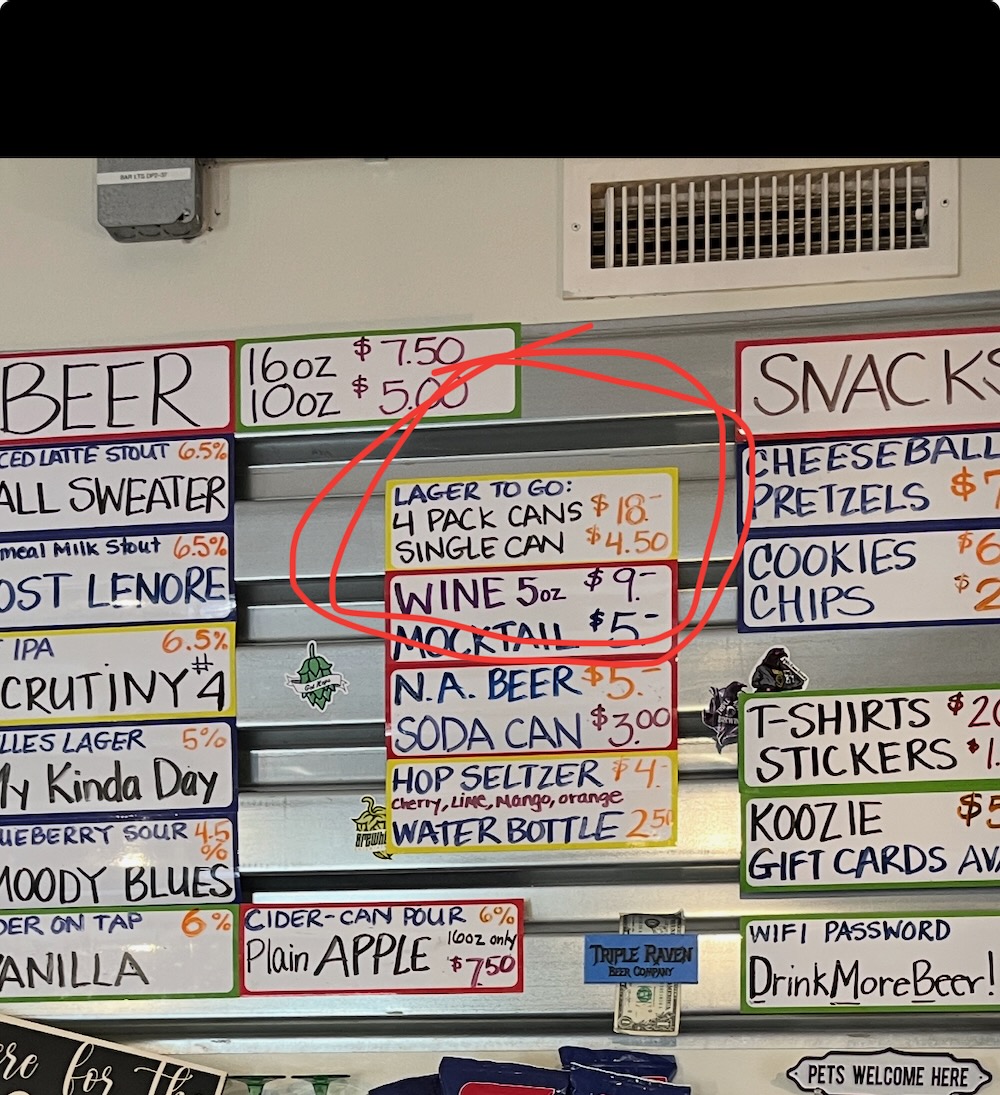 BEER
16oz $7.50
10oz $5.00
LATTE STOUT 6.5%
SWEATER
Milk Stout 6.5%
LENORE
IPA 6.5%
#4
LAGER 5%
Kinda Day
SOUR 4.5%
BLUES
ON TAP 6%
CIDER-CAN POUR 6%
Plain APPLE 16oz only
$7.50
LAGER TO GO:
4 PACK CANS $18.-
SINGLE CAN $4.50
WINE 5oz $9.-
MOCKTAIL $5-
N.A. BEER $5.-
SODA CAN $3.00
HOP SELTZER $4-
cherry, Lime, Mango, orange
WATER BOTTLE 2.50
TRIPLE RAVEN
BEER COMPANY
SNACKS
CHEESEBALL
PRETZELS
COOKIES
CHIPS
T-SHIRTS
STICKERS
KOOZIE
GIFT CARDS
WIFI PASSWORD
DrinkMoreBeer!
PETS WELCOME HERE
for